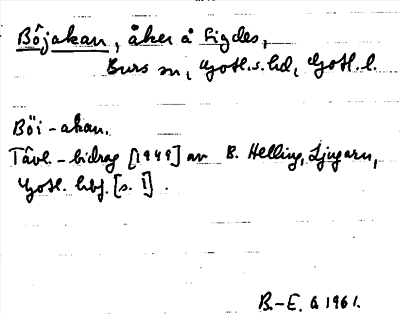 Böjakan, åker å Sigdes,
Burs sn, Gotl. s. hd, Gotl. l.
Böi-akan.
Tävl.-bidrag [1949] av B. Helling, Ljugarn,
Gotl. hbf. [s. 1].
B.-E. G 1961.